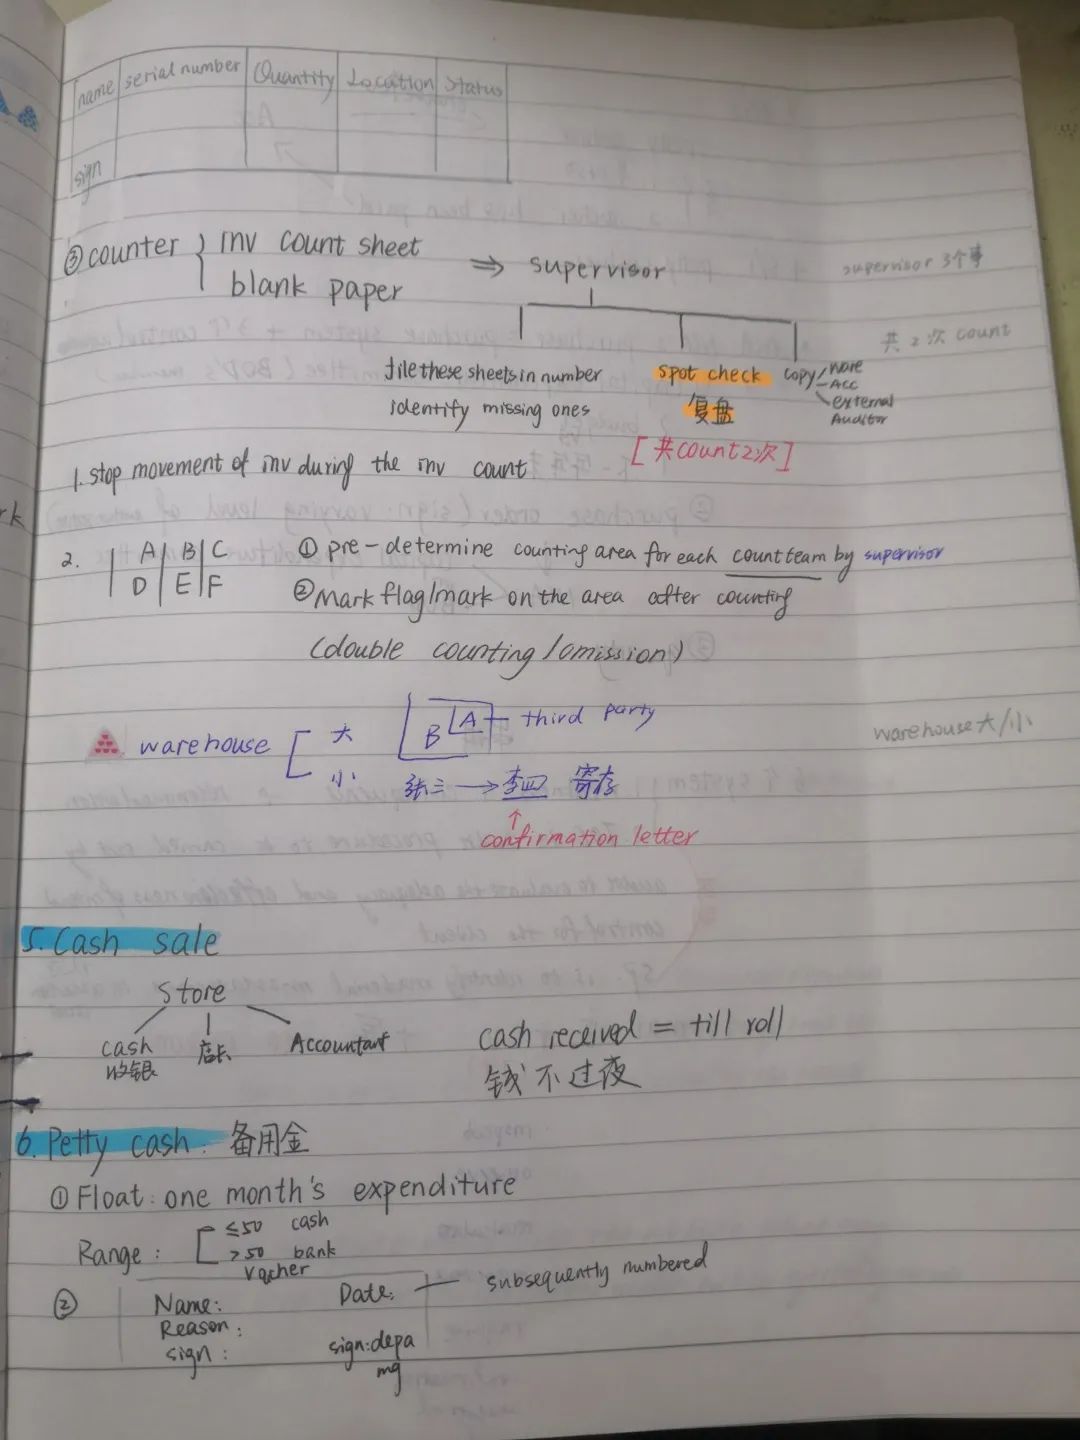 name serial number Quantity Location Status
sign
③ counter { inv count sheet
blank paper
⇒ supervisor
supervisor 3个事
共2次 count
file these sheets in number
identify missing ones
spot check
复盘
[共count2次]
copy ware
Acc
external
Auditor
1. stop movement of inv during the inv count
2. A B C
D E F
① pre-determine counting area for each count team by supervisor
② Mark flag/mark on the area after counting
(double counting/omission)
warehouse [ 大
小
B A third party
张三 → 李四 寄存
↑
confirmation letter
warehouse 大/小
5. Cash sale
Store
cash
收银
店长
Accountant
cash received = till roll
钱不过夜
6. Petty cash. 备用金
① Float: one month's expenditure
Range: [ ≤50 cash
>50 bank
vocher
② Name: Date: — subsequently numbered
Reason:
sign: sign:depa
mg